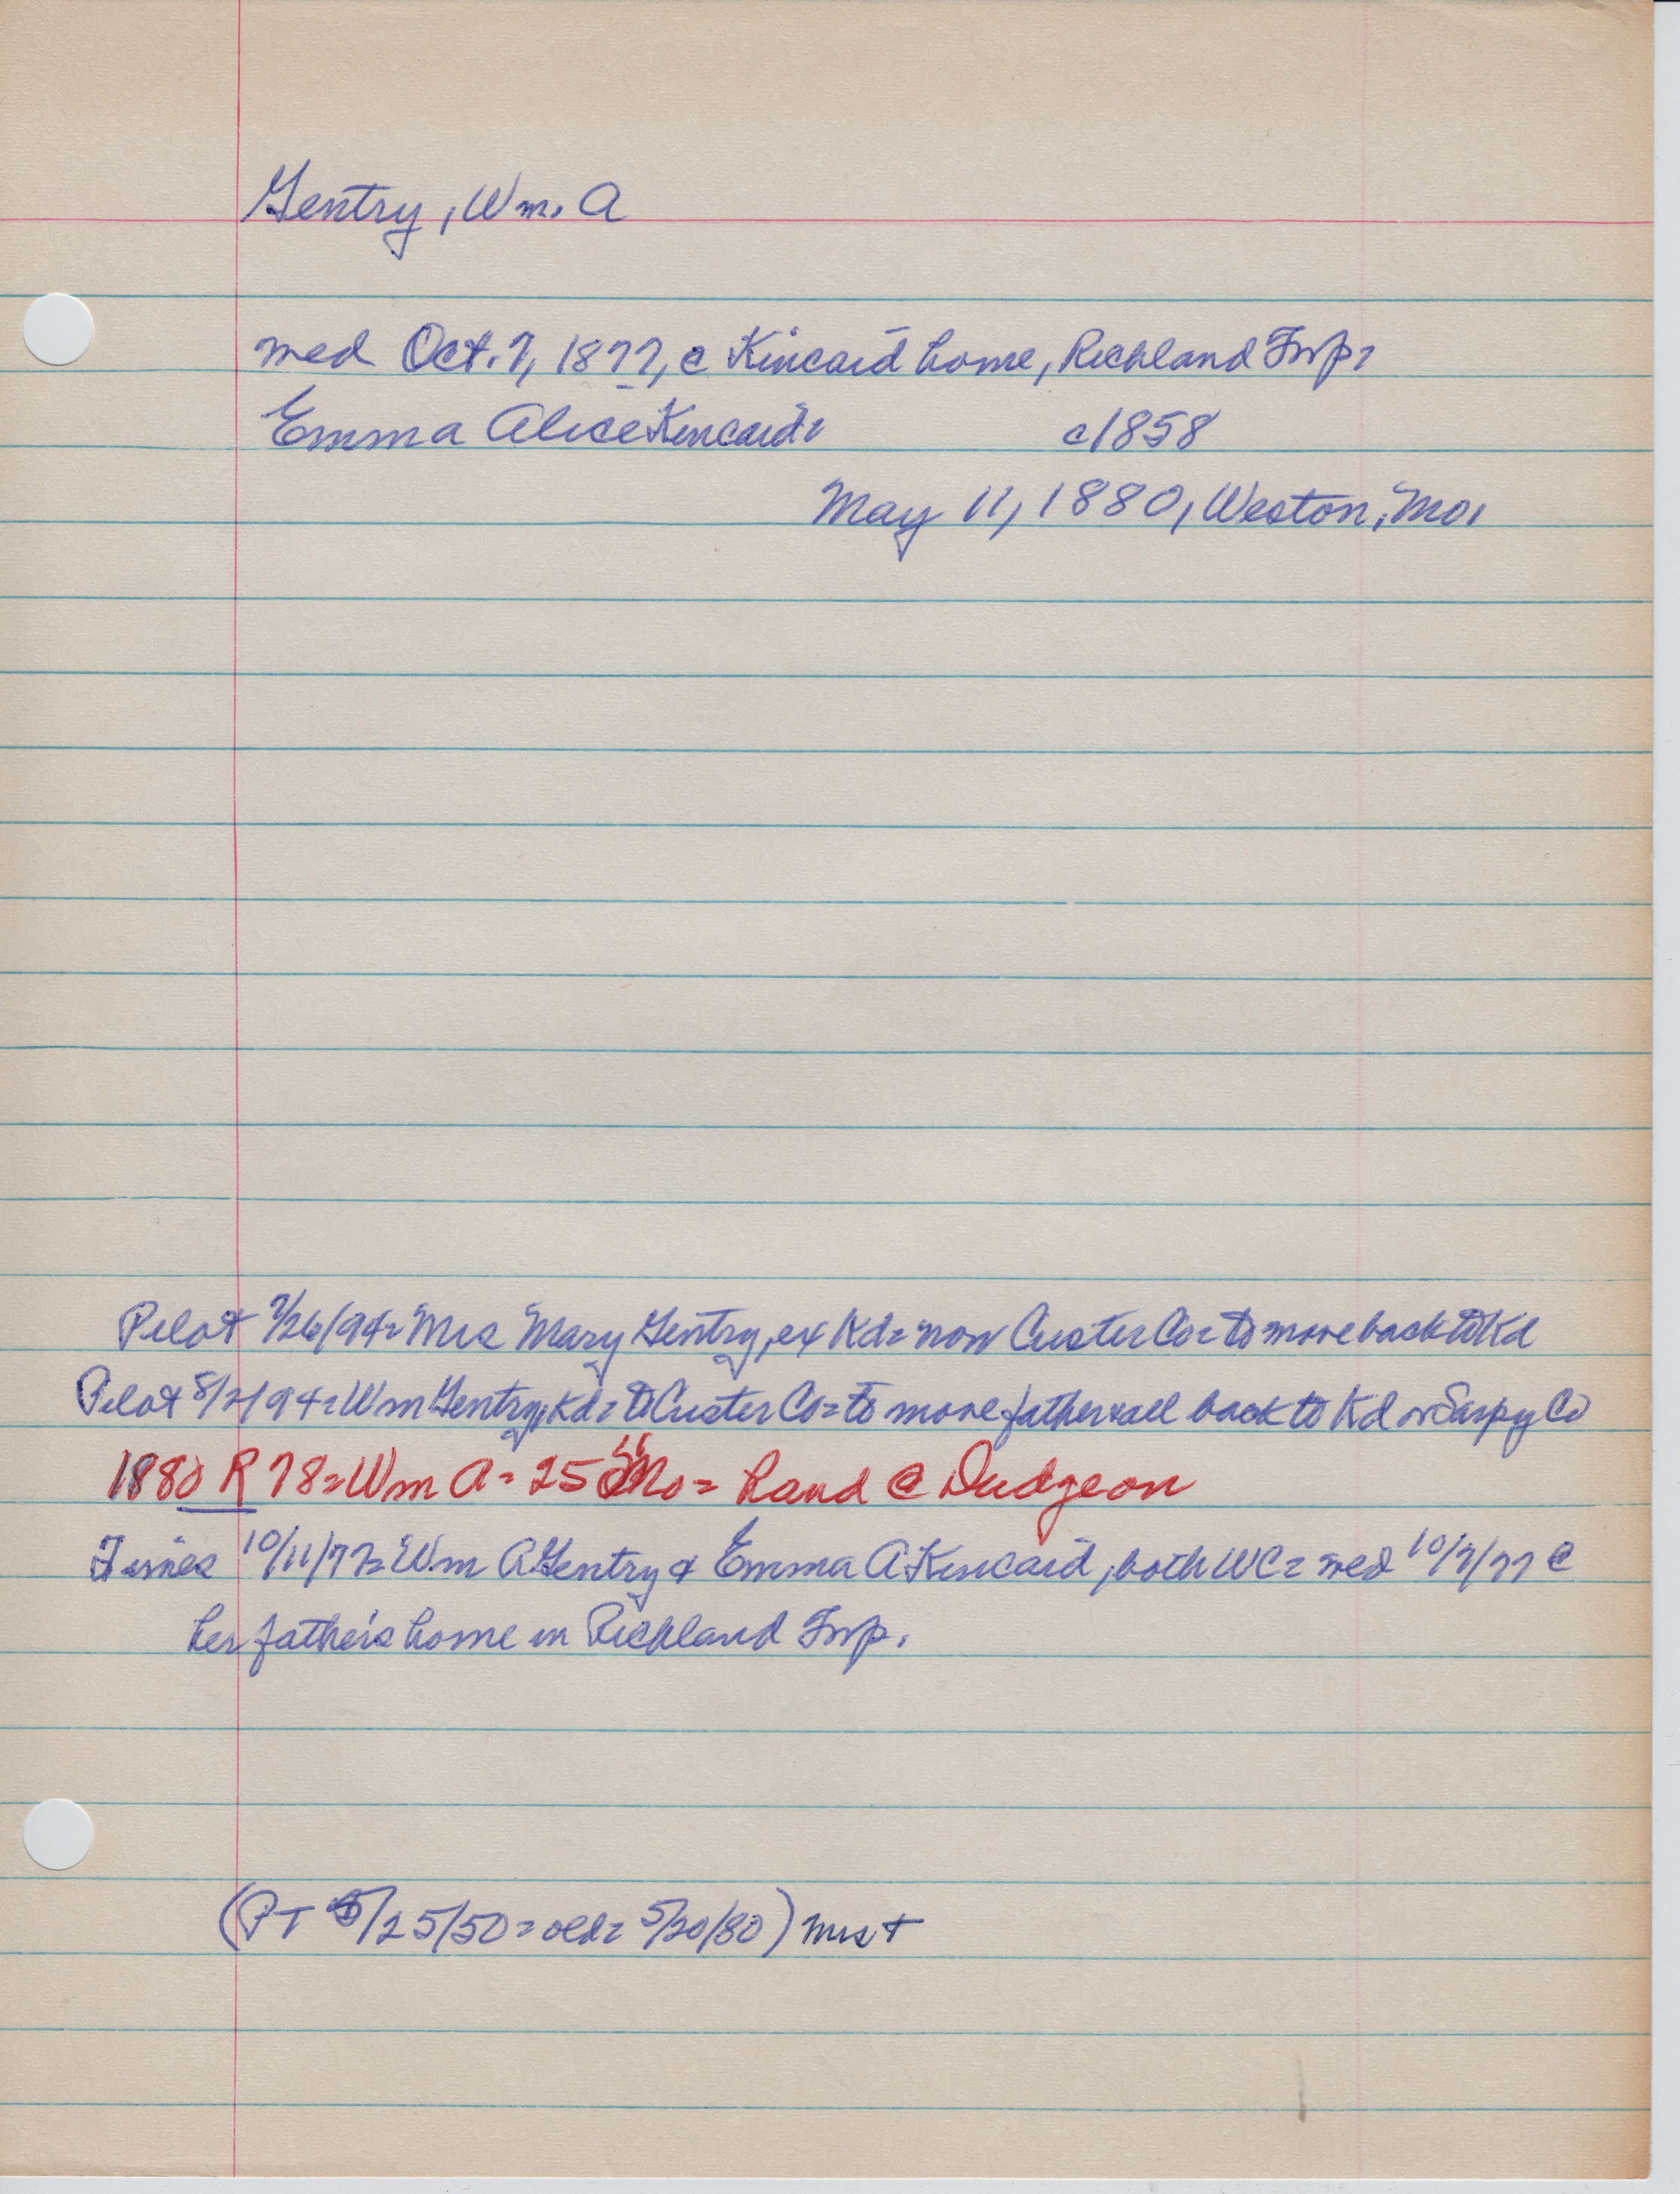 Gentry, Wm. A
med Oct. 7, 1877, @ Kincaid home, Richland Twp.
Emma Alice Kincaid c1858
May 11, 1880, Weston, Mo.
Pilot 7/26/94= Mrs Mary Gentry, ex Kd= now Custer Co= to move back to Kd
Pilot 8/2/94= Wm Gentry, Kd= to Custer Co= to move father & all back to Kd or Sarpy Co
1880 R 78= Wm A= 25 Mo= Rand @ Dudgeon
Times 10/11/77= Wm A Gentry & Emma A Kincaid, both WC= med 10/7/77 @
her father's home in Richland Twp.
(PT 5/25/50= old= 5/20/80) Mrs +